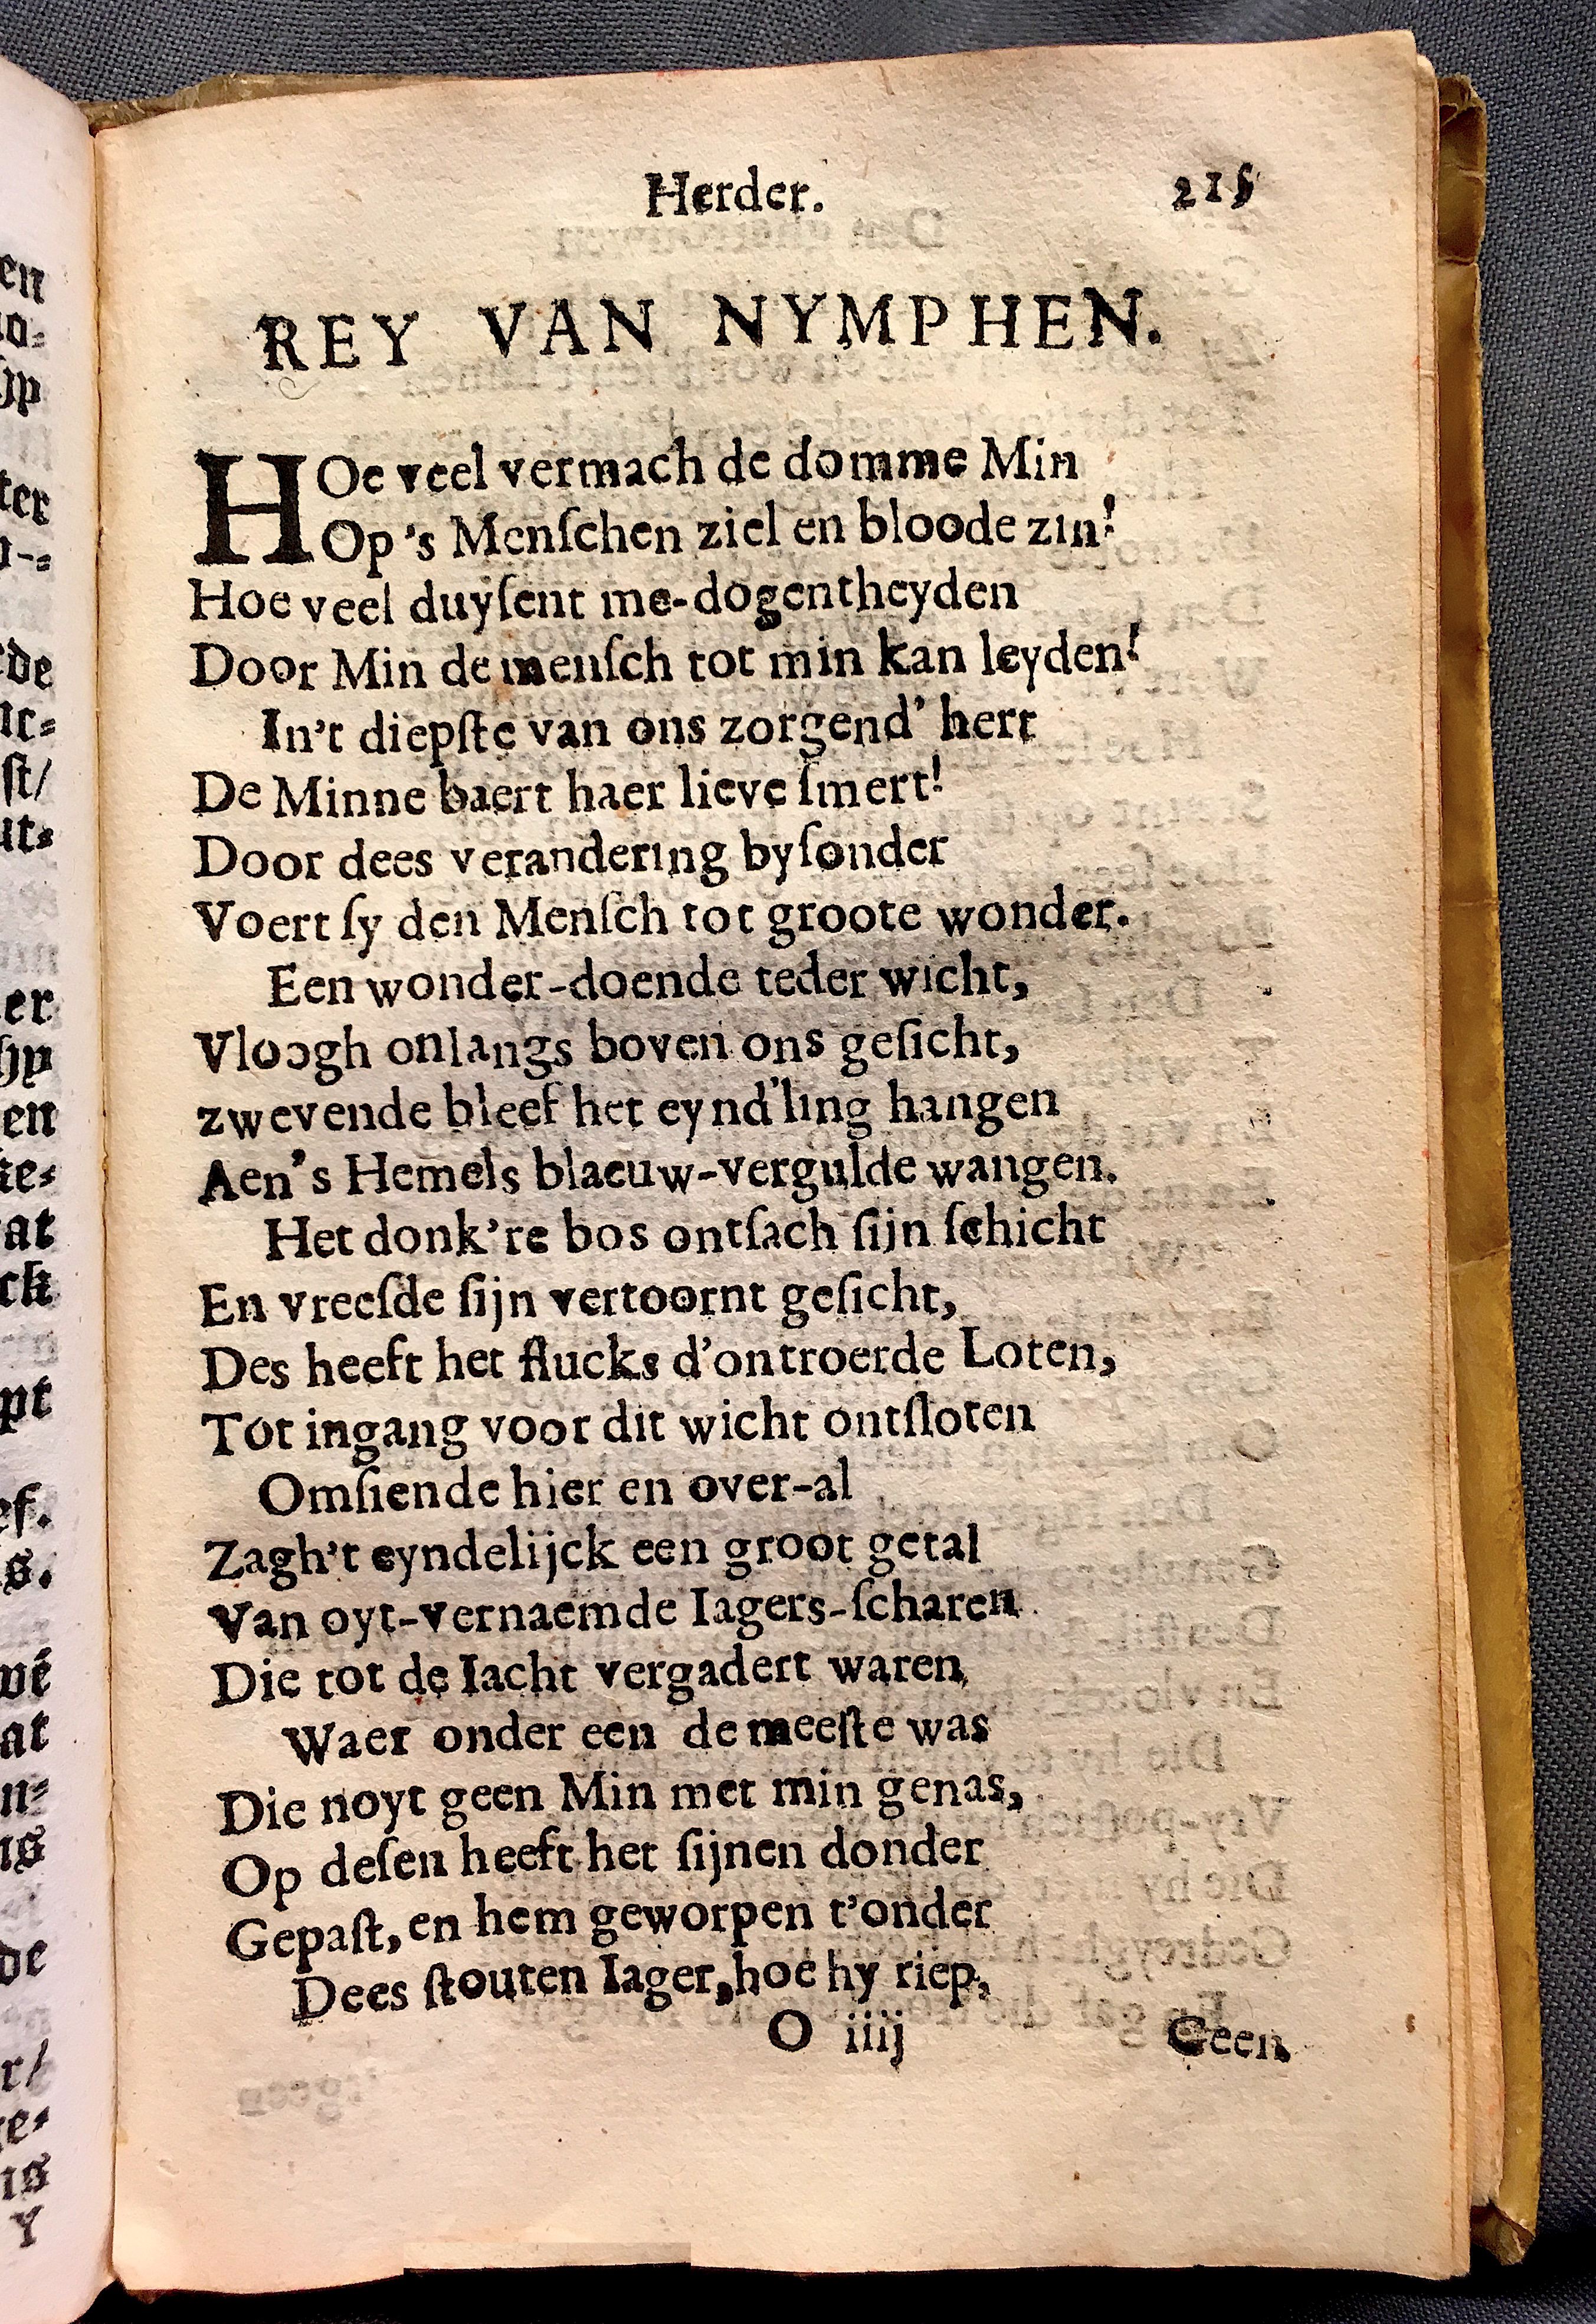 Herder. 215
REY VAN NYMPHEN.
HOe veel vermach de domme Min
Op 's Menſchen ziel en bloode zin!
Hoe veel duyſent me-dogentheyden
Door Min de menſch tot min kan leyden!
In't diepſte van ons zorgend' hert
De Minne baert haer lieve ſmert!
Door dees verandering byſonder
Voert ſy den Menſch tot groote wonder.
Een wonder-doende teder wicht,
Vloogh onlangs boven ons geſicht,
zwevende bleef het eynd'ling hangen
Aen's Hemels blaeuw-vergulde wangen.
Het donk're bos ontſach ſijn ſchicht
En vreeſde ſijn vertoornt geſicht,
Des heeft het flucks d'ontroerde Loten,
Tot ingang voor dit wicht ontſloten
Omſiende hier en over-al
Zagh't eyndelijck een groot getal
Van oyt-vernaemde Iagers-ſcharen
Die tot de Iacht vergadert waren,
Waer onder een de meeſte was
Die noyt geen Min met min genas,
Op deſen heeft het ſijnen donder
Gepaſt, en hem geworpen t'onder
Dees ſtouten Iager, hoe hy riep,
O iiij Geen